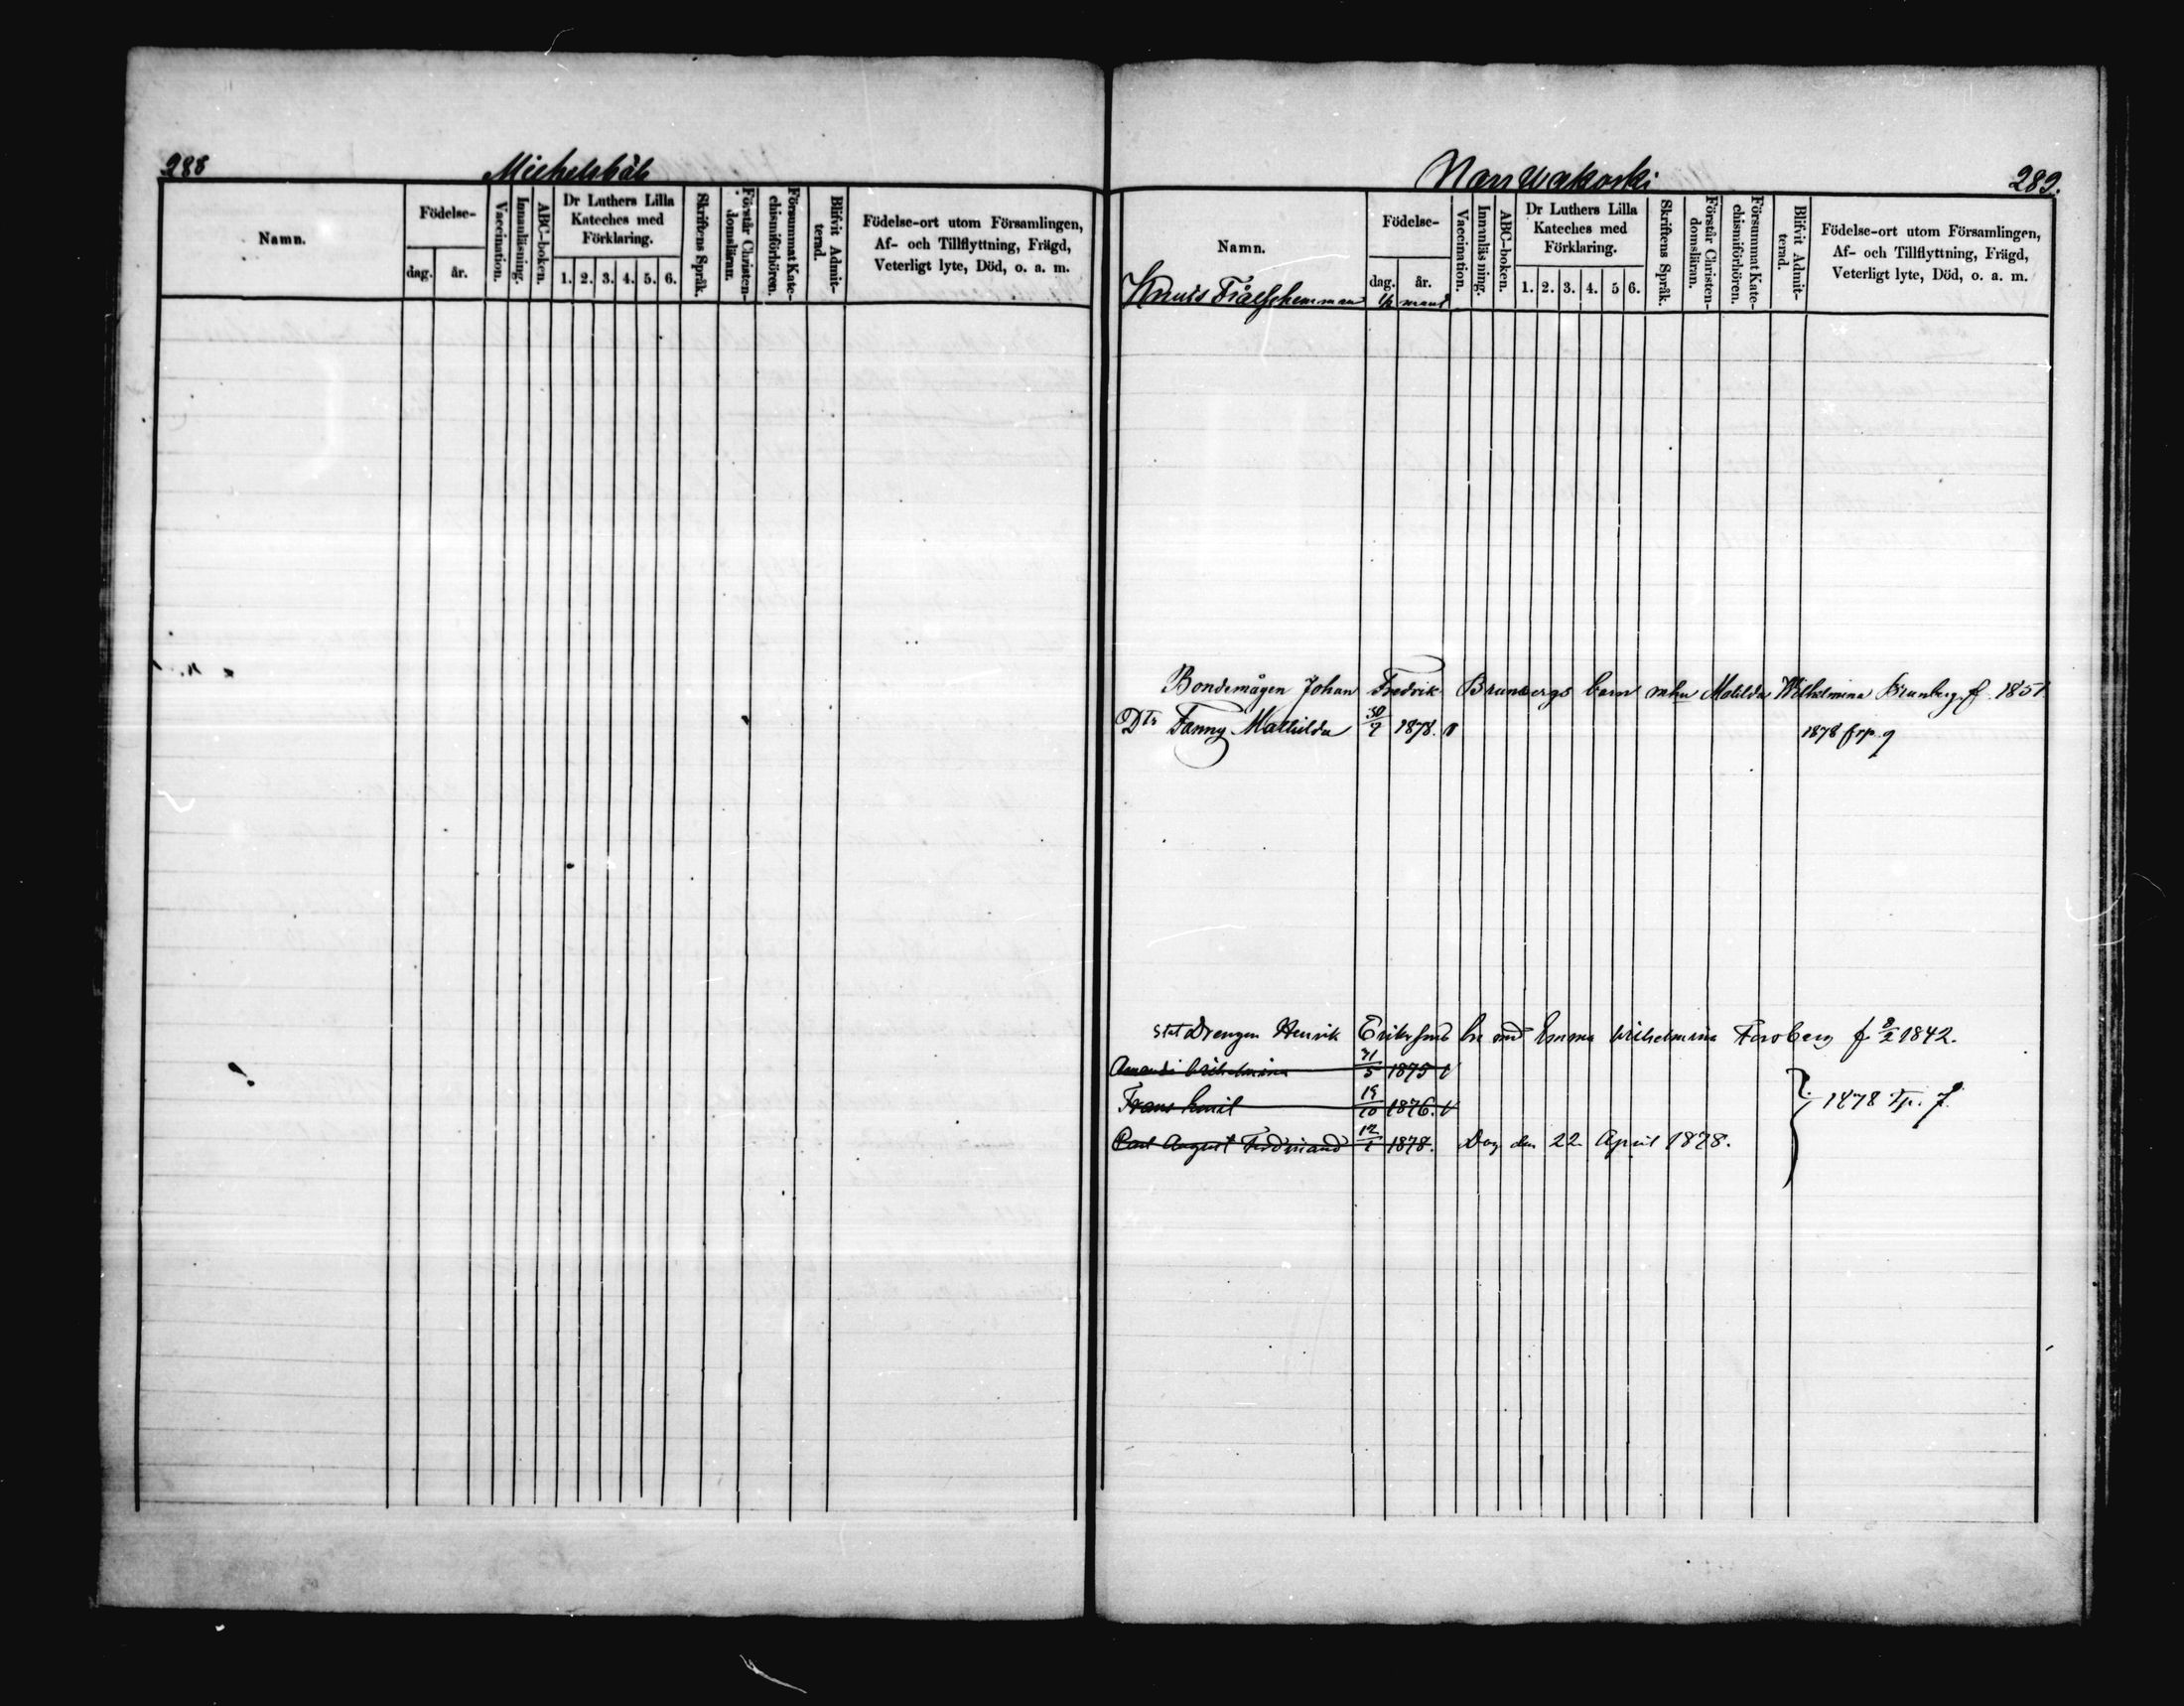 288
Michelsböle
Namn.
Födelse-
dag.
år.
Vaccination.
Innanläsning.
ABC-boken.
Dr Luthers Lilla
Kateches med
Förklaring.
1. 2. 3. 4. 5. 6.
Skriftens Språk.
Förstår Christen-
domsläran.
Försummat Kate-
chismiförhören.
Blifvit Admit-
terad.
Födelse-ort utom Församlingen,
Af- och Tillflyttning, Frägd,
Veterligt lyte, Död, o. a. m.
289.
Namn.
Födelse-
dag.
år.
Vaccination.
Innanläsning.
ABC-boken.
Dr Luthers Lilla
Kateches med
Förklaring.
1. 2. 3. 4. 5 6.
Skriftens Språk.
Förstår Christen-
domsläran.
Försummat Kate-
chismiförhören.
Blifvit Admit-
terad.
Födelse-ort utom Församlingen,
Af- och Tillflyttning, Frägd,
Veterligt lyte, Död, o. a. m.
Frälsehemman
Bondemågen Johan Fredrik Brunbergs barn Matilda Wilhelmina Brunberg f. 1851
Dtr Fanny Mathilda 30/7 1878. 1878 frp. 9
Drengen Henrik Emma Wilhelmina Forsberg f 1842.
Wilhelmina 5 1875
Frans Emil 19/10 1876.
Carl August Ferdinand 12/1 1878. Dog den 22 April 1878.
1878